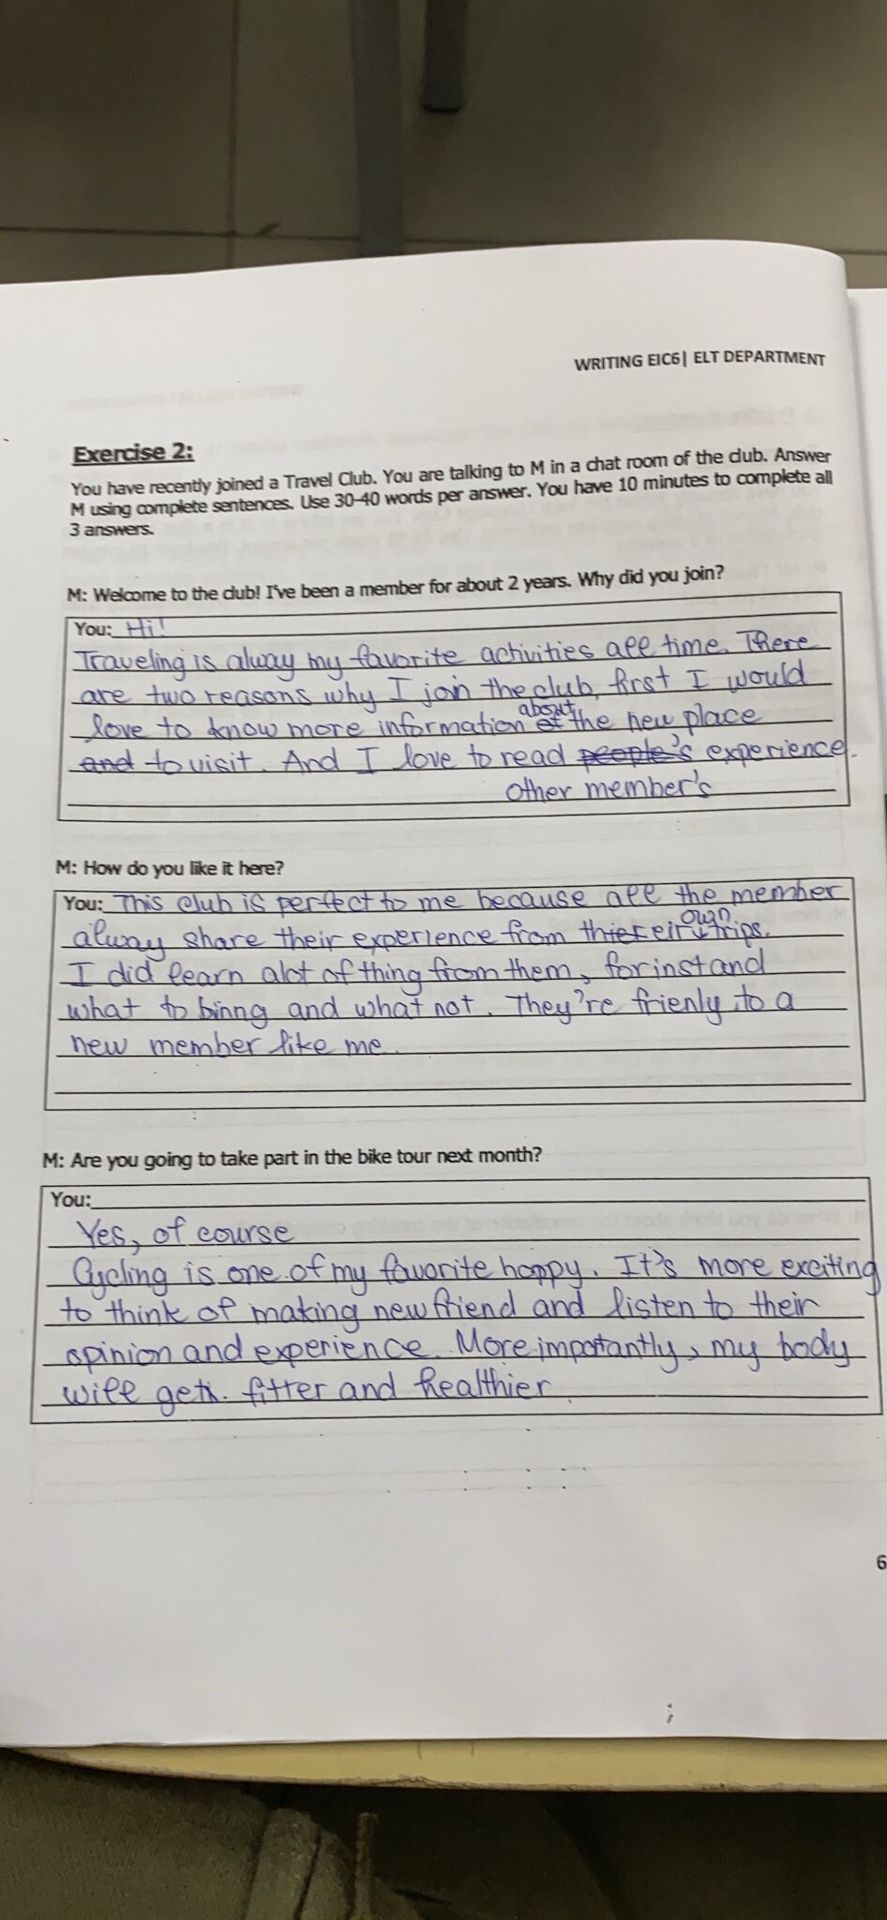 WRITING EIC6| ELT DEPARTMENT
Exercise 2:
You have recently joined a Travel Club. You are talking to M in a chat room of the club. Answer
M using complete sentences. Use 30-40 words per answer. You have 10 minutes to complete all
3 answers.
M: Welcome to the club! I've been a member for about 2 years. Why did you join?
You: Hi!
Traveling is alway my favorite activities all time. There
are two reasons why I join the club, first I would
love to know more information of about the new place
and to visit. And I love to read people's experience.
other member's
M: How do you like it here?
You: This club is perfect to me because all the member
alway share their experience from thier eir own trips.
I did learn alot of thing from them, for instand
what to binng and what not. They're frienly to a
new member like me.
M: Are you going to take part in the bike tour next month?
You:
Yes, of course
Cycling is one of my favorite hoppy. It's more exciting
to think of making new friend and listen to their
opinion and experience. More importantly, my body
will get. fitter and healthier
6